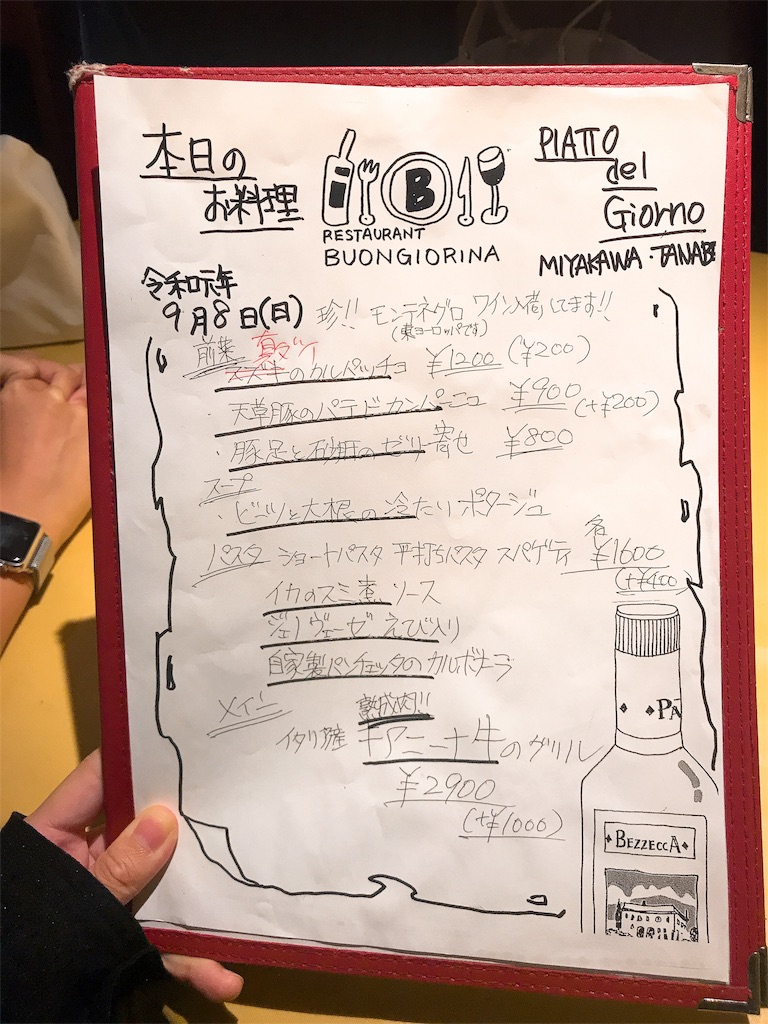 本日の
お料理
B
RESTAURANT
BUONGIORINA
PIATTO
del
Giorno
MIYAKAWA・TANABE
令和元年
9月8日(日)
珍!! モンテネグロ ワイン入荷してます!!
(東ヨーロッパです)
前菜 真ダイ
スズキのカルパッチョ ¥1200 (¥200)
・天草豚のパテドカンパーニュ ¥900 (+¥200)
・豚足と砂肝のゼリー寄せ ¥800
スープ
・ビーツと大根の冷たいポタージュ
パスタ ショートパスタ 平打ちパスタ スパゲティ 各¥1600
(+¥400)
イカのスミ煮ソース
ジェノヴェーゼ えび入り
自家製パンチェッタのカルボナーラ
メイン 熟成肉!!
イタリア産 キアニーナ牛のグリル
¥2900
(+¥1000)
PA
BEZZECCA